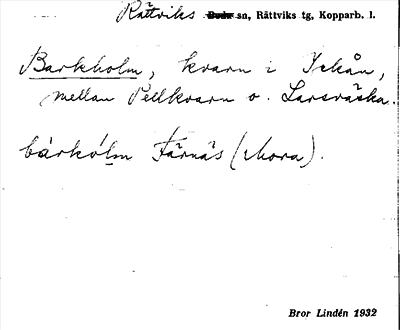 Rättviks Boda sn, Rättviks tg, Kopparb. l.
Barkholm, kvarn i Ickån,
mellan Pellkvarn o. Larsväska.
bàrkólm Färnäs (Mora).
Bror Lindén 1932